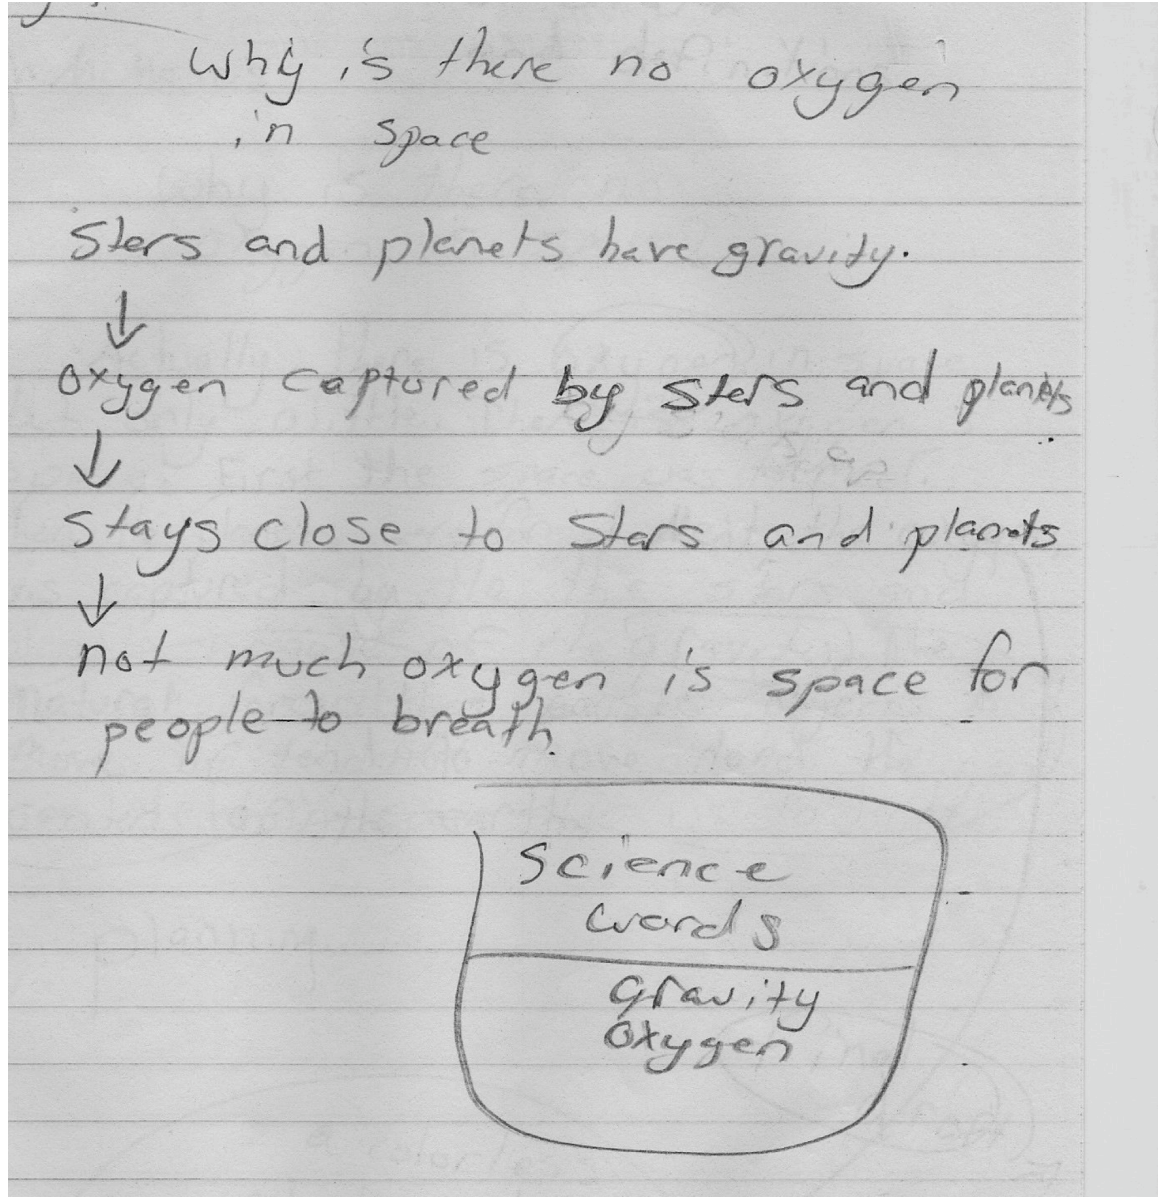 why is there no oxygen
in space
Sters and planets have gravity.
↓
oxygen captured by sters and planets
↓
stays close to Stars and planets
↓
not much oxygen is space for
people to breath.
Science
words
Gravity
Oxygen